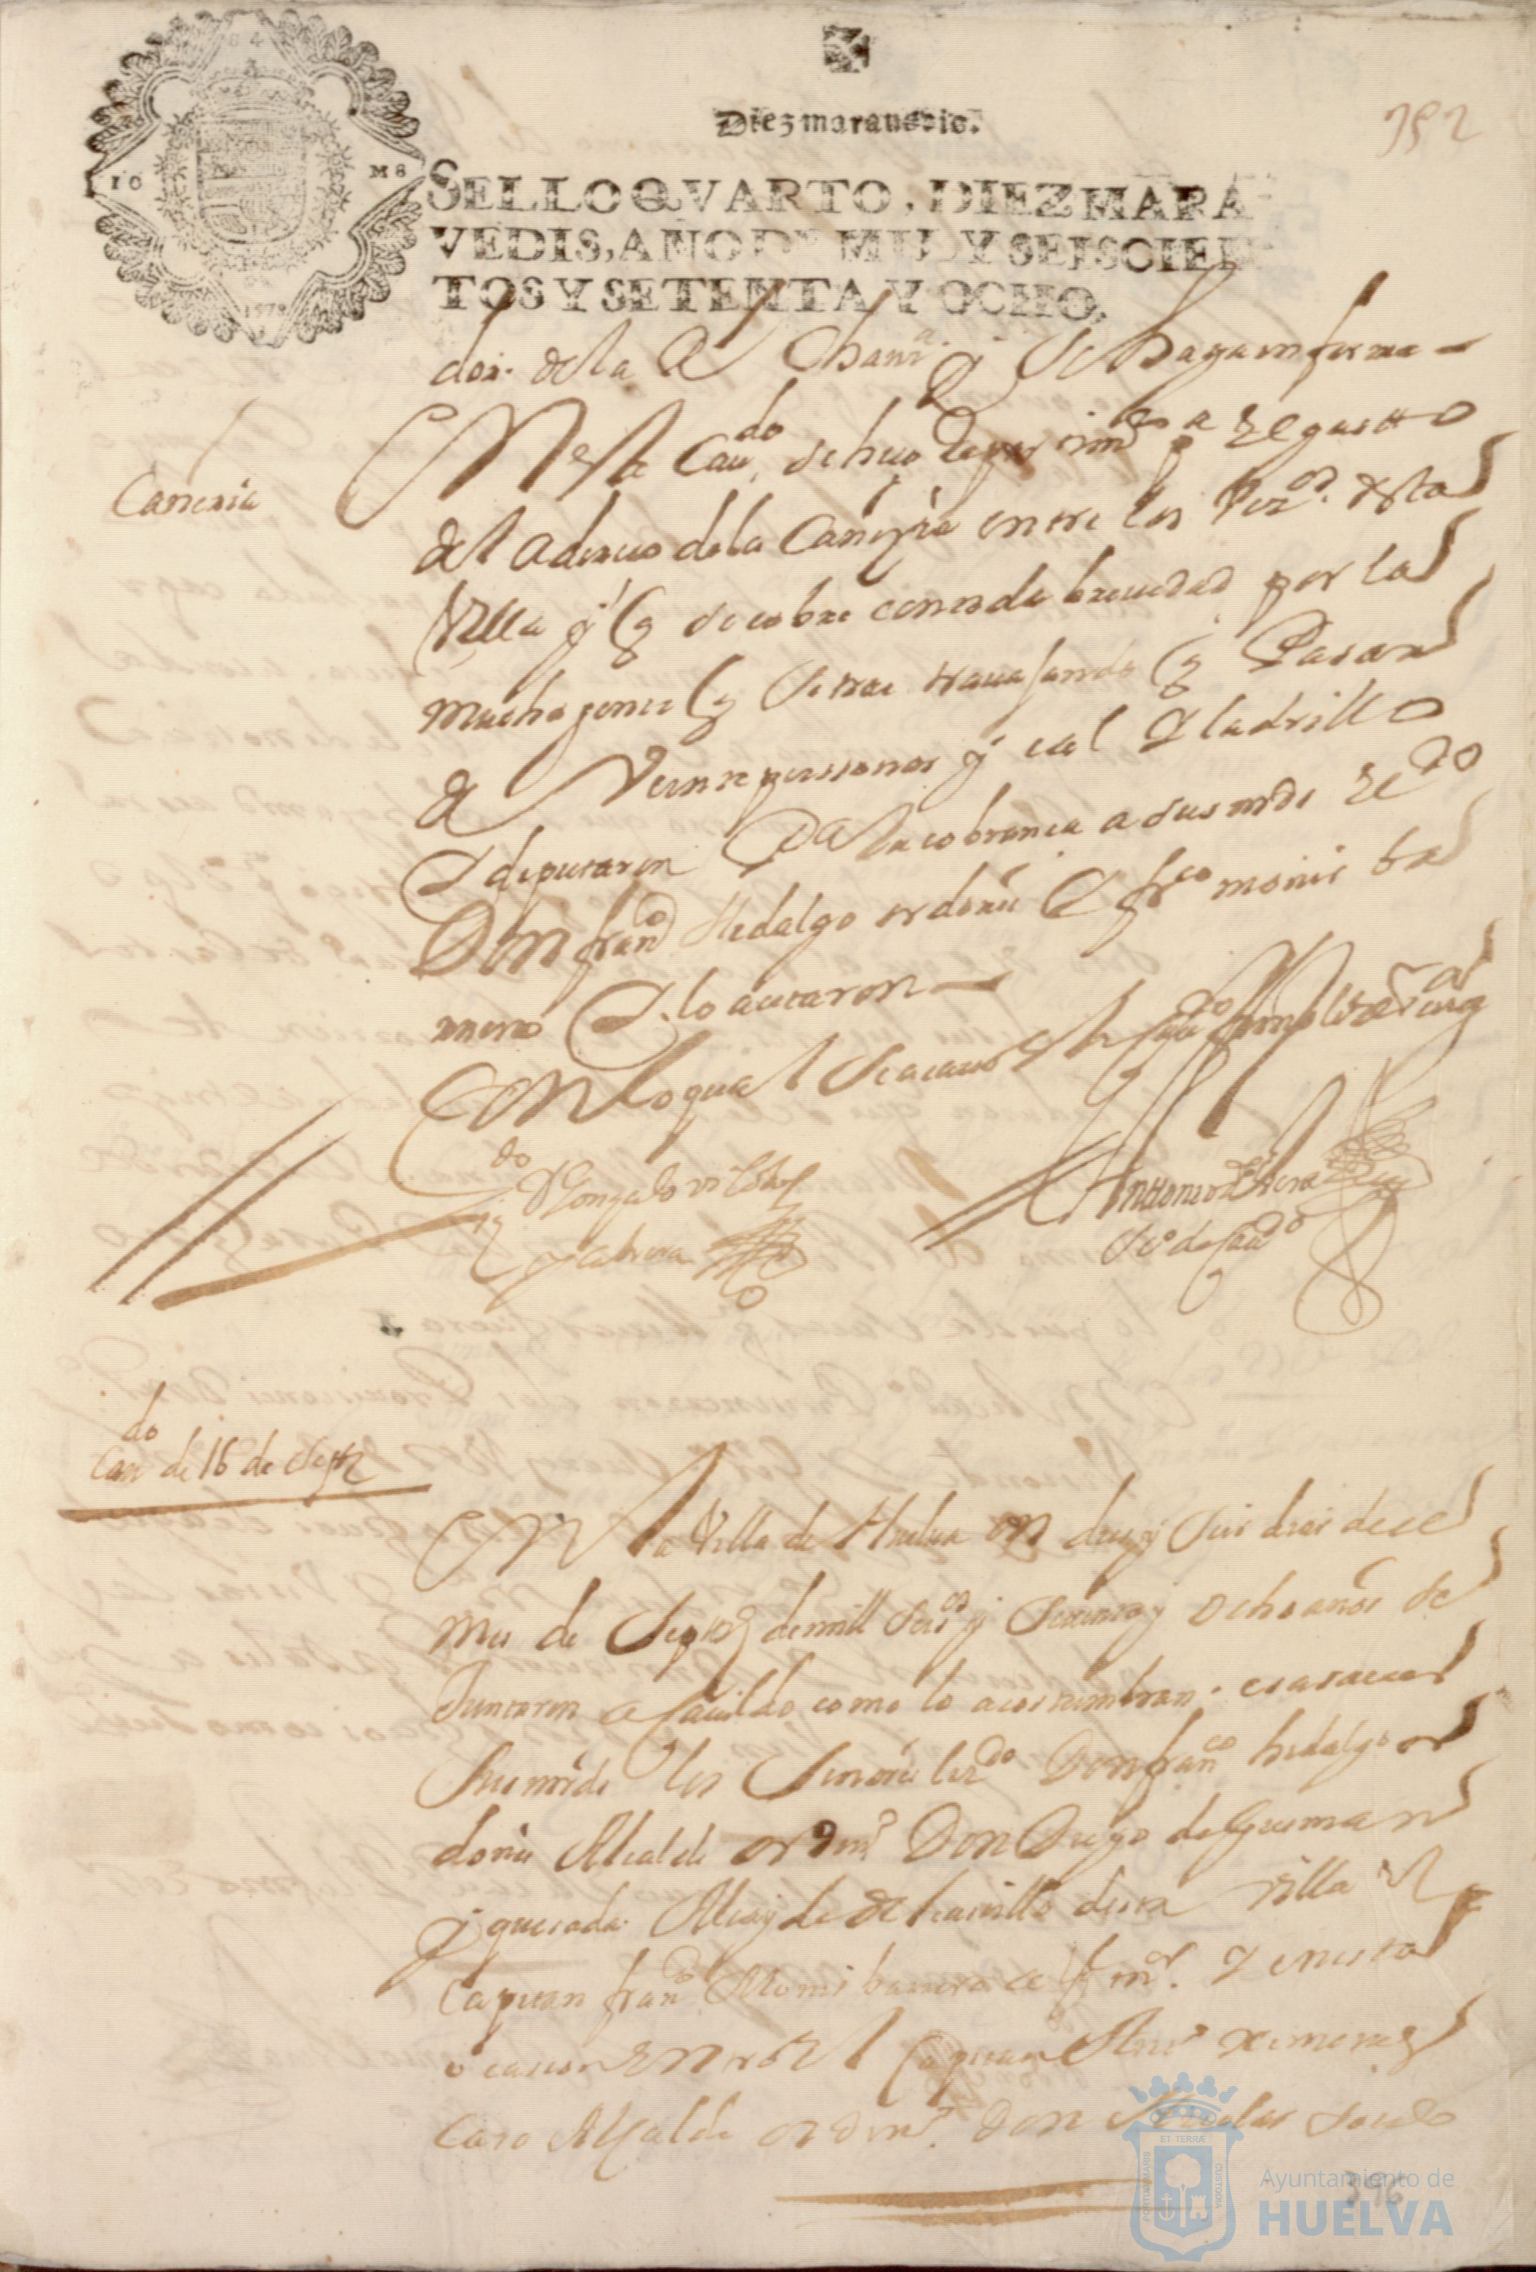 Diez marauedis.
392
SELLO QVARTO, DIEZ MARA
VEDIS, AÑO DE MIL Y SEISCIEN
TOS Y SETENTA Y OCHO.
dor. de la Rl Chanra. y se haga informa
Cañeria
En este Caudo. se hiço Repartimto pa El gasto
del adereso de la Cañeria entre los Vezos. desta
Villa y q se cobre con toda breuedad por la
mucha jente q se trae trauajando q Pasan
de Veinte perssonas y cal Y ladrillo
Y diputaron Pa la cobranca a sus mds El do
Don frando Hidalgo ordoñes Y frco monis ba
rrera Y lo acitaron
Con lo qual se acauo este Caudo
do Dn Gonzalo
y Cabrera
Antonio de
sno de Caudo
Caudo de 16 de Septe
En la Villa de Huelua en dies y seis dias de el
mes de Septe de mill seisos y setenta y ocho años se
Juntaron a Cauildo como lo acostumbran
sus mrds los señores lizdo Don franco hidalgo or
doñes Alcalde ordino Don Diego de Gusman
y quesada Alcayde del castillo desta villa El
Capitan frando Monis barrera alg mor. Y en esta
ocasion Entro El Capitan Anto Ximenes
Caro Alcalde ordino. Don Nicolas
396
Ayuntamiento de
HUELVA